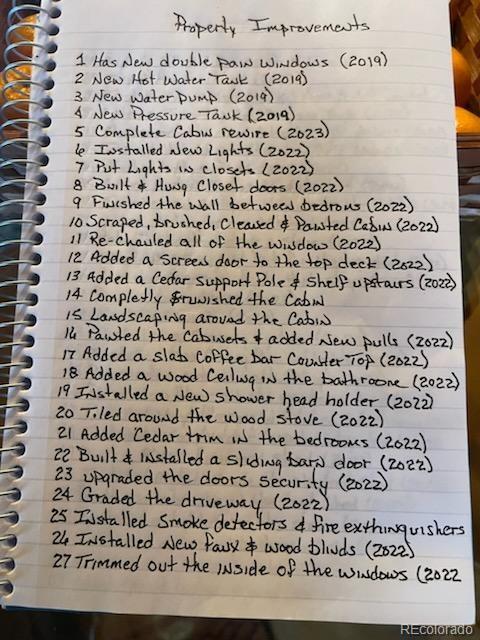 Property Improvements
1 Has New double pain windows (2019)
2 New Hot Water Tank (2019)
3 New Water pump (2019)
4 New Pressure Tank (2019)
5 Complete Cabin rewire (2023)
6 Installed New Lights (2022)
7 Put Lights in closets (2022)
8 Built & Hung Closet doors (2022)
9 Finished the wall between bedroms (2022)
10 Scraped, brushed, Cleaned & Painted Cabin (2022)
11 Re-chauled all of the windows (2022)
12 Added a Screen door to the top deck (2022)
13 Added a Cedar Support Pole & Shelf upstairs (2022)
14 Completly furnished the Cabin
15 Landscaping around the Cabin
16 Painted the Cabinets & added New pulls (2022)
17 Added a slab Coffee bar Counter Top (2022)
18 Added a wood Ceiling in the bathroome (2022)
19 Installed a New shower head holder (2022)
20 Tiled around the wood stove (2022)
21 Added Cedar trim in the bedrooms (2022)
22 Built & installed a sliding barn door (2022)
23 upgraded the doors security (2022)
24 Graded the driveway (2022)
25 Installed Smoke detectors & fire exthinquishers
26 Installed New faux & wood blinds (2022)
27 Trimmed out the inside of the windows (2022
REcolorado